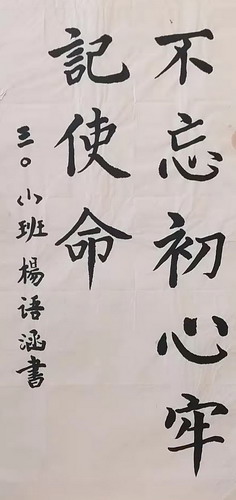 不忘初心牢
記使命
三〇小班楊语涵書